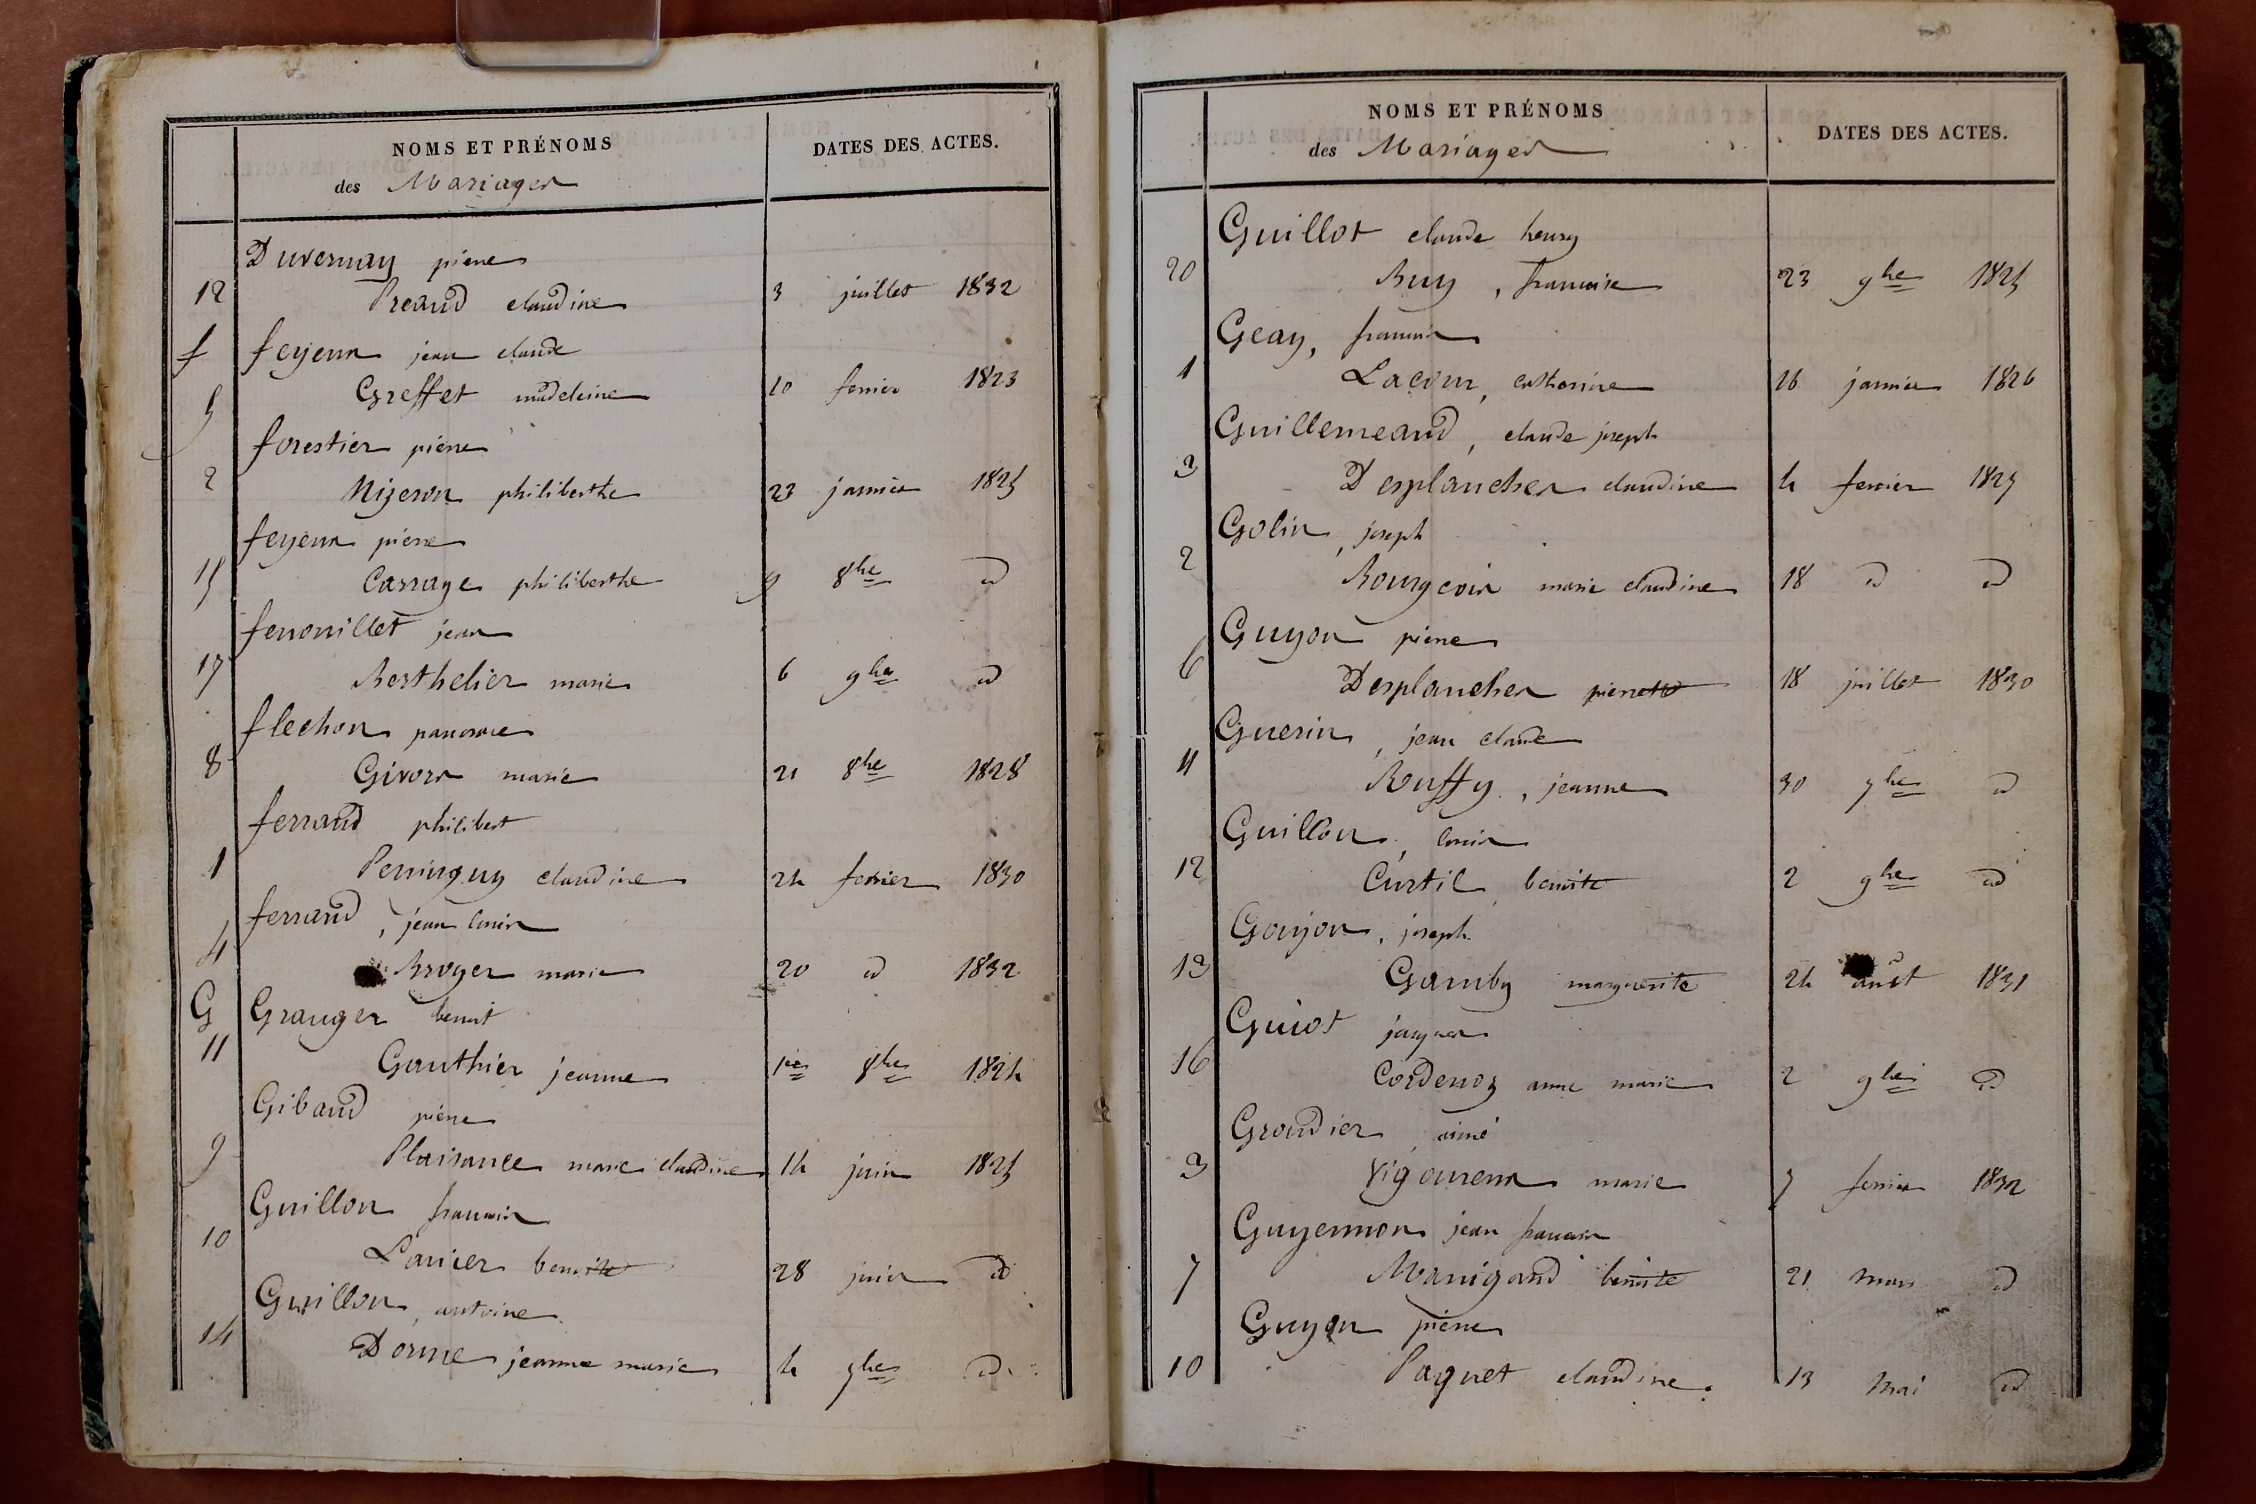 NOMS ET PRÉNOMS
DATES DES ACTES.
des Mariages
Duvernay pierre
12 Preaud claudine 3 juillet 1832
f feyeux jean claude
5 Greffet madeleine 10 fevrier 1823
forestier pierre
2 Nizeron philiberthe 23 janvier 1825
feyeux pierre
15 Carrage philiberthe 9 8bre id
fenouillet jean
17 Berthelier marie 6 9bre id
flechon pancrace
8 Givors marie 21 8bre 1828
ferraud philibert
1 Perringuy claudine 24 fevrier 1830
ferraud, jean louis
4 Broyer marie 20 id 1832
G Granger benoit
11 Gauthier jeanne 1er 8bre 1824
Gibaud pierre
9 Plaisance marie claudine 14 juin 1825
Guillon francois
10 Lanier benoite 28 juin id
Guillon, antoine
14 Dorme jeanne marie 4 9bre id
NOMS ET PRÉNOMS
DATES DES ACTES.
des Mariages
Guillot claude henry
20 Buy, francoise 23 9bre 1825
Geay, francois
1 Lacour, catherine 16 janvier 1826
Guillemeaud, claude joseph
3 Desplanches claudine 4 fevrier 1829
Golin, joseph
2 Bourgeois marie claudine 18 id id
Guyon pierre
6 Desplanches pierrette 18 juillet 1830
Guerin, jean claude
11 Buffy, jeanne 30 7bre id
Guillon, louis
12 Curtil benoite 2 9bre id
Goujon, joseph
13 Gamby marguerite 24 aout 1831
Guiot jacques
16 Cordenoz anne marie 2 9bre id
Groudier aimé
3 Vigoureux marie 7 fevrier 1832
Guyennon jean francois
7 Manigand benoite 21 mars id
Guyon pierre
10 Paquet claudine. 13 mai id